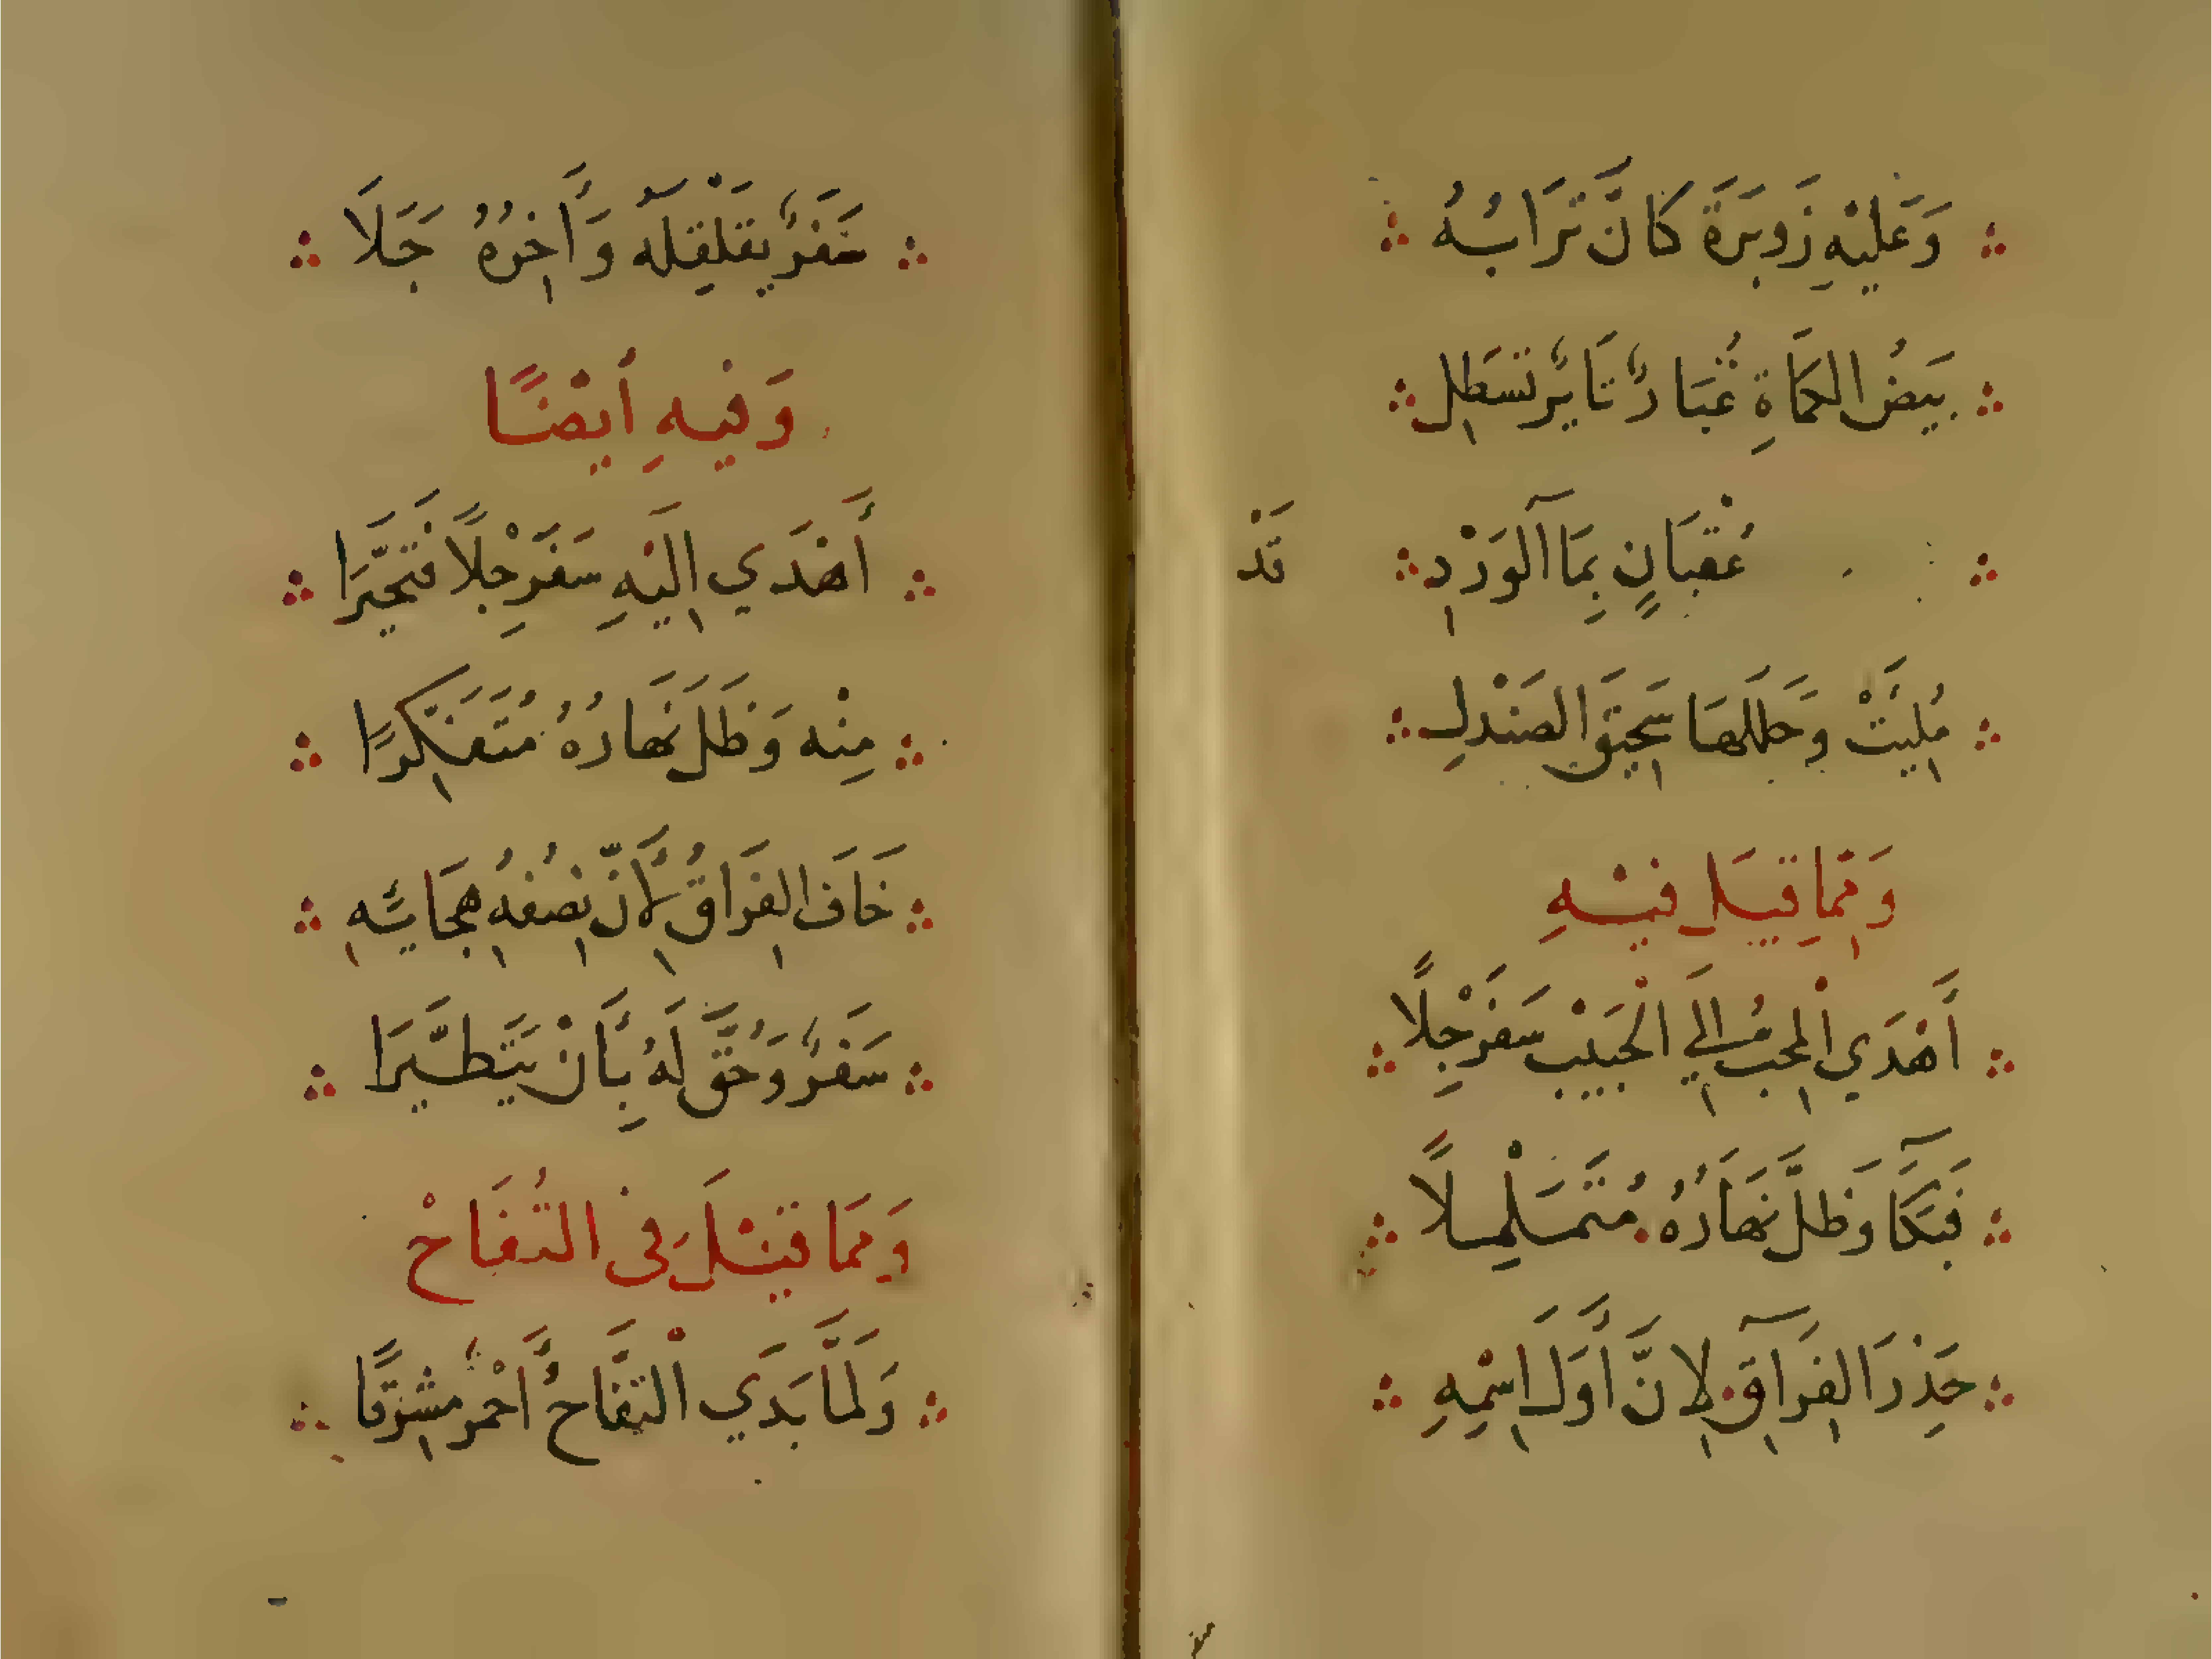 وَعَليْهِ زَوبَرَة كَانَ تَرَابُهُ
بَيضُ الكمَاةِ غُبَارٌ ثَايرٌ تسَطِل
عُقبَانٍ بِمَا آلوَرْدِ قَدْ
مُلِيَتْ وَحَللَهَا سَحِيقَ الصَندَلِ
وَمِمَّا قيَل فيْهِ
أَهْدَي الْمحبُ اِلَي الْحَبَيْب سَفرْجِلًا
فبَكَا وَظلَّ نَهَارُهُ مُتَمَلْمِلًا
حَذِرَ الفِرَاقِ لِانَّ أوَلَ اسْمِهِ
سَفَرٌ يقَلْقِلَه وَأَخِرُهُ جَلَا
وَفيهِ أَيضًا
أَهْدَي اِليْهِ سَفَرْجِلًا فَتَحَيَّرَا
مِنْه وَظَلَ نَهَارُهُ مُتَفَكِرًا
خَافَ الفِرَاقُ لِأَنّ نِصْفُهُ هِجَايَّهِ
سَفَرٌ وَحُقَّ لَهُ بِأَنْ يَتَطَيَّرَا
وَمِمَا قيْلَ فِي التُفَاحْ
وَلَمَّا بَدَي الْتفَّاحُ أَحْمَرٌ مُشرِقًا